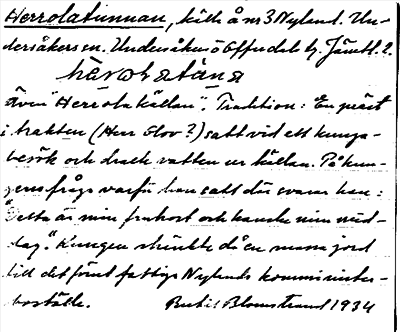 Herrolatunnan, källa å nr 3 Nylund. Un-
dersåkers sn. Undersåker o Offerdal tg. Jämtl. l.
Även "Herrolakällan". Tradition: En präst
i trakten (Herr Olov?) satt vid ett kunga-
besök och drack vatten ur källan. På kun-
gens fråga varför han satt där svarar han:
"Detta är min frukost och kanske min mid-
dag." Kungen skänkte då en manns jord
till det förut fattiga Nylands komminister-
boställe. Bertil Blomstrand 1934